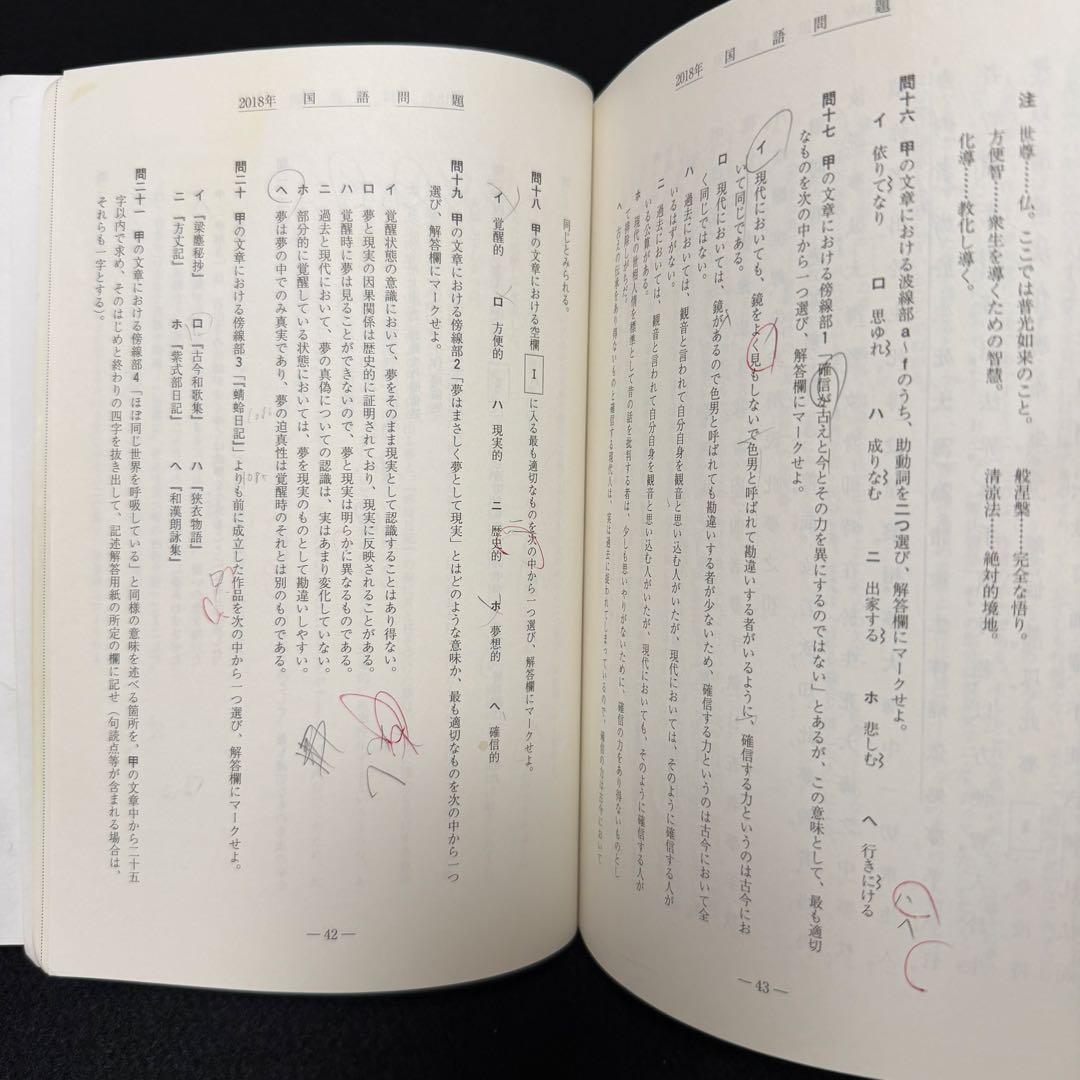 2018年 国語問題
注 世尊……仏。ここでは普光如来のこと。 般涅槃……完全な悟り。
方便智……衆生を導くための智慧。 清涼法……絶対的境地。
化導……教化し導く。
問十六 甲の文章における波線部a～fのうち、助動詞を二つ選び、解答欄にマークせよ。
イ 依りてなり ロ 思ゆれ ハ 成りなむ ニ 出家する ホ 悲しむ ヘ 行きにける
問十七 甲の文章における傍線部1「確信が古えと今とその力を異にするのではない」とあるが、この意味として、最も適切
なものを次の中から一つ選び、解答欄にマークせよ。
イ 現代においても、鏡をよく見もしないで色男と呼ばれて勘違いする者がいるように、確信する力というのは古今にお
いて同じである。
ロ 現代においては、鏡があるので色男と呼ばれても勘違いする者が少ないため、確信する力というのは古今において全
く同じではない。
ハ 過去においては、観音と言われて自分自身を観音と思い込む人がいたが、現代においては、そのように確信する人が
いるはずがない。
ニ 過去においては、観音と言われて自分自身を観音と思い込む人がいたが、現代においても、そのように確信する人が
いる公算がある。
ホ 現代の世相人情を標準として昔の話を批判する者は、少しも思いやりがないために、確信の力をあり得ないものとし
て排除しがちだ。
ヘ 古えの伝承をあり得ないものと確信する現代人は、実は過去に捉われてしまっているので、確信の力は古今において
ハ
ヘ
— 43 —
2018年 国語問題
同じとみられる。
問十八 甲の文章における空欄 I に入る最も適切なものを次の中から一つ選び、解答欄にマークせよ。
イ 覚醒的 ロ 方便的 ハ 現実的 ニ 歴史的 ホ 夢想的 ヘ 確信的
問十九 甲の文章における傍線部2「夢はまさしく夢として現実」とはどのような意味か、最も適切なものを次の中から一つ
選び、解答欄にマークせよ。
イ 覚醒状態の意識において、夢をそのまま現実として認識することはあり得ない。
ロ 夢と現実の因果関係は歴史的に証明されており、現実に反映されることがある。
ハ 覚醒時に夢は見ることができないので、夢と現実は明らかに異なるものである。
ニ 過去と現代において、夢の真偽についての認識は、実はあまり変化していない。
ホ 部分的に覚醒している状態においては、夢を現実のものとして勘違いしやすい。
ヘ 夢は夢の中でのみ真実であり、夢の迫真性は覚醒時のそれとは別のものである。
問二十 甲の文章における傍線部3『蜻蛉日記』よりも前に成立した作品を次の中から一つ選び、解答欄にマークせよ。
イ 『梁塵秘抄』 ロ 『古今和歌集』 ハ 『狭衣物語』
ニ 『方丈記』 ホ 『紫式部日記』 ヘ 『和漢朗詠集』
問二十一 甲の文章における傍線部4「ほぼ同じ世界を呼吸している」と同様の意味を述べる箇所を、甲の文章中から二十五
字以内で求め、そのはじめと終わりの四字を抜き出して、記述解答用紙の所定の欄に記せ（句読点等が含まれる場合は、
それらも一字とする）。
— 42 —